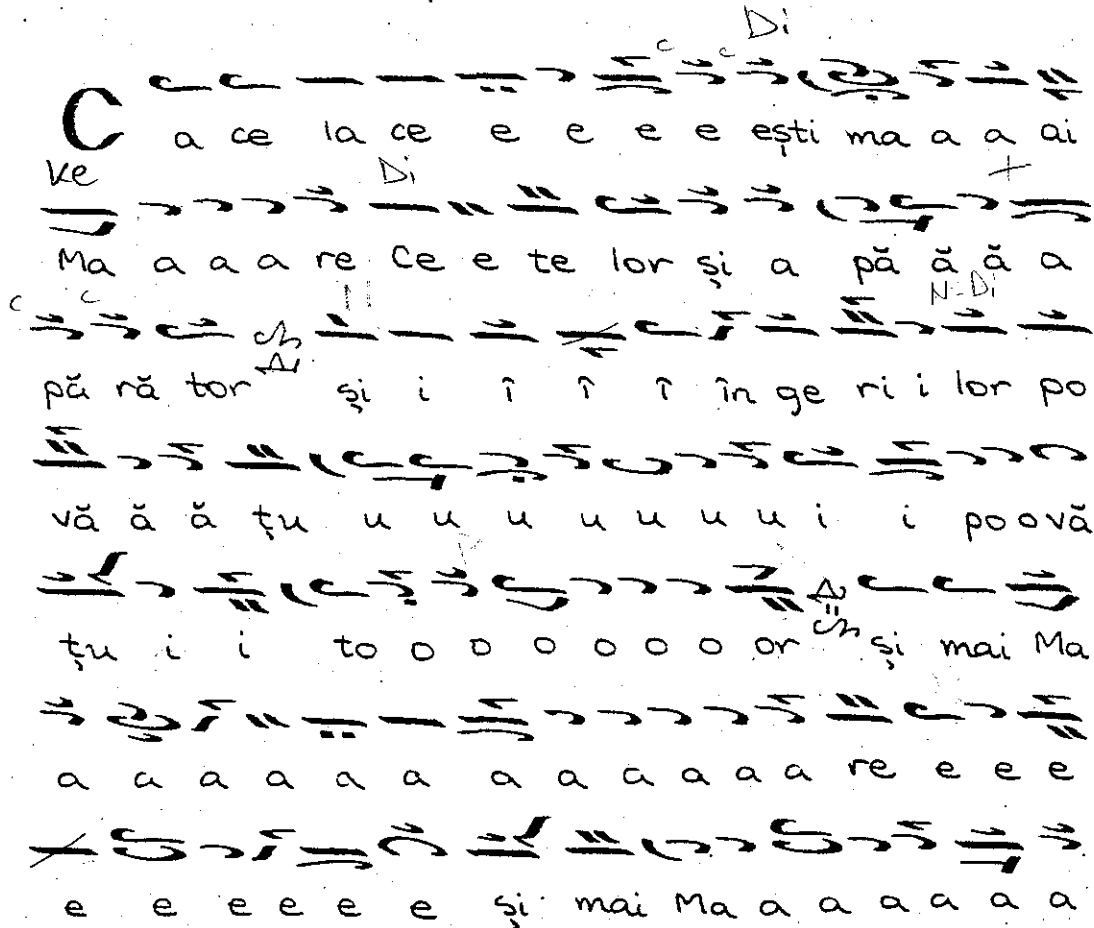 Di
C a ce la ce e e e e ești ma a a ai
Ke Di
Ma a a a re Ce e te lor și a pă ă ă a
N-Di
pă ră tor și i î î î în ge ri i lor po
vă ă ă țu u u u u u u u i i po o vă
țu i i to o o o o o o or și mai Ma
a a a a a a a a a a a a re e e e
e e e e e e și mai Ma a a a a a a